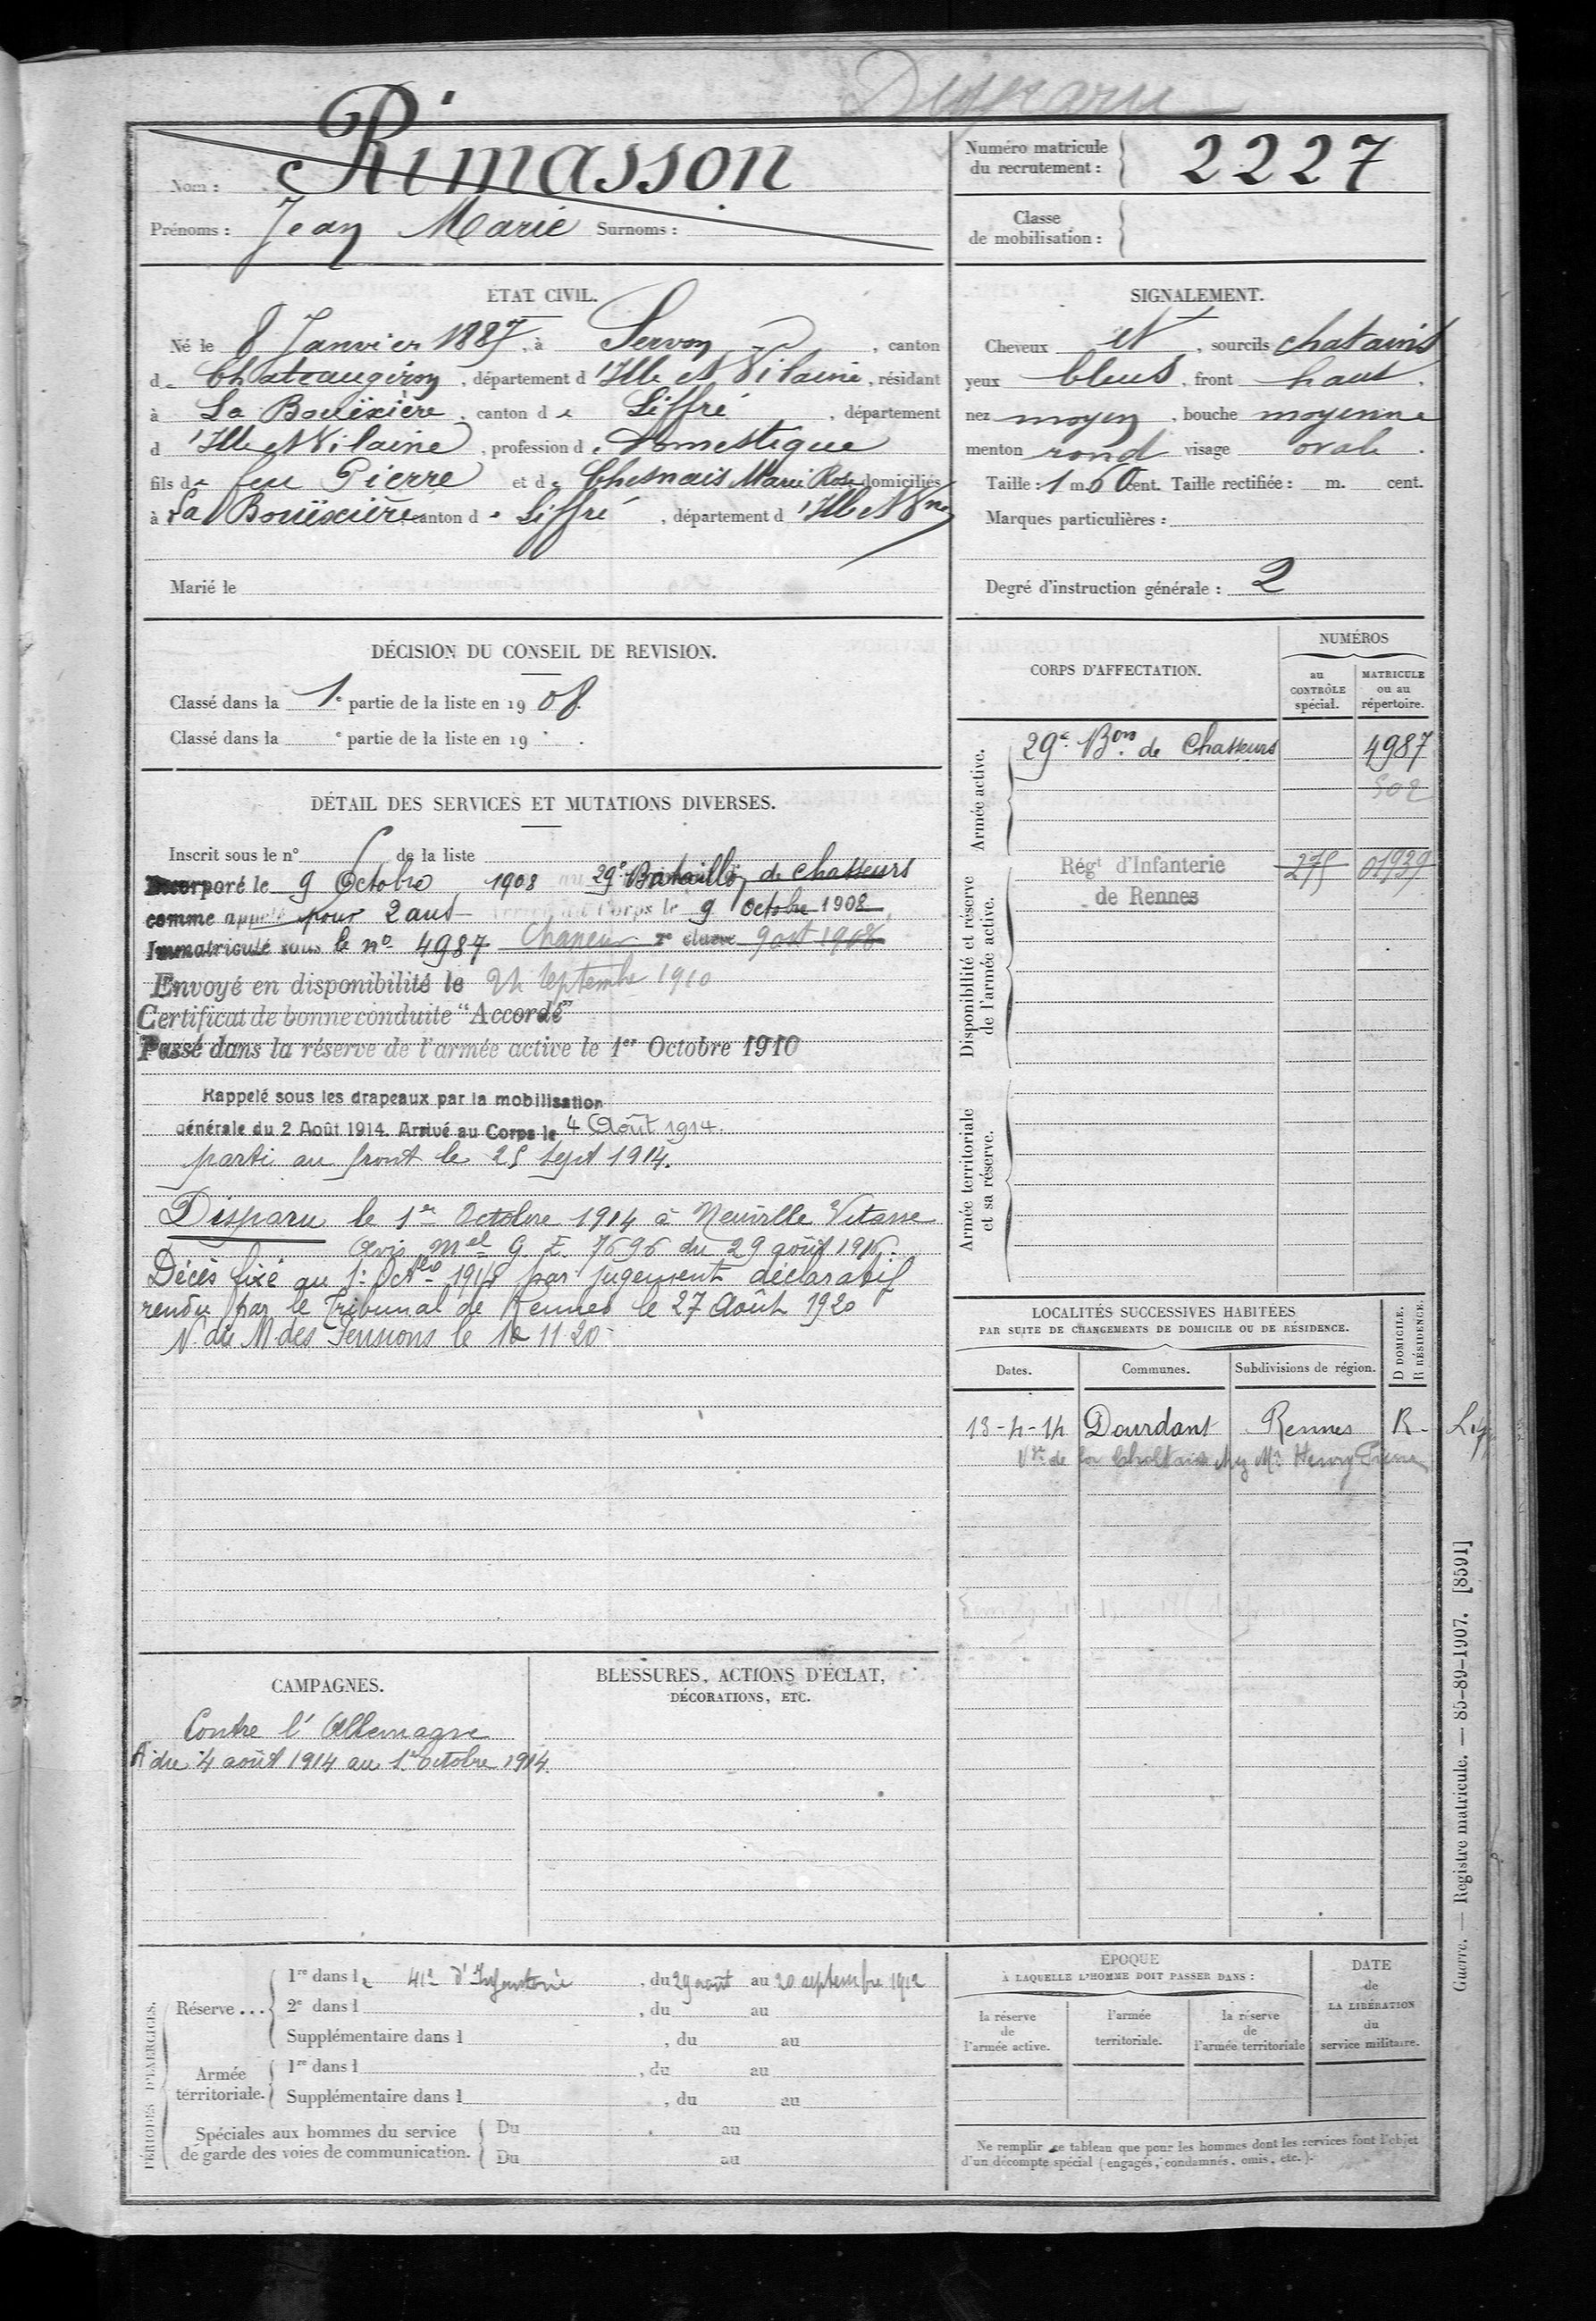 Disparu
Nom : Rimasson
Prénoms : Jean Marie Surnoms :
Numéro matricule du recrutement : 2227
Classe de mobilisation :
ÉTAT CIVIL.
Né le 8 Janvier 1887, à Servon, canton
de Chateaugiron, département d'Ille et Vilaine, résidant
à La Bouëxière, canton de Liffré, département
d'Ille et Vilaine, profession de domestique
fils de feu Pierre et de Chesnais Marie Rose domiciliés
à La Bouëxière canton de Liffré, département d'Ille et Vne
Marié le
SIGNALEMENT.
Cheveux et, sourcils chatains
yeux bleus, front haut.
nez moyen, bouche moyenne
menton rond visage ovale.
Taille : 1 m. 60 cent. Taille rectifiée : m. cent.
Marques particulières :
Degré d'instruction générale : 2
DÉCISION DU CONSEIL DE REVISION.
Classé dans la 1e partie de la liste en 1908.
Classé dans la e partie de la liste en 19 .
DÉTAIL DES SERVICES ET MUTATIONS DIVERSES.
Inscrit sous le n° de la liste
Incorporé le 9 Octobre 1908 au 29e Bataillon de Chasseurs
comme appelé pour 2 ans Corps le 9 octobre 1908,
Immatriculé sous le no 4987 2e classe 9 oct 1908
Envoyé en disponibilité le 24 Septembre 1910
Certificat de bonne conduite "Accordé"
Passé dans la réserve de l'armée active le 1er Octobre 1910
Rappelé sous les drapeaux par la mobilisation
générale du 2 Août 1914. Arrivé au Corps le 4 Août 1914.
parti au front le 25 sept 1914.
Disparu le 1er Octobre 1914 à Neuville Vitasse
Avis Mel G. E. 7696 du 29 août 1916.
Décès fixé au 1er Octbre 1914 par jugement déclaratif
rendu par le Tribunal de Rennes le 27 Août 1920
N. du M. des Pensions le 11 20
CORPS D'AFFECTATION.
NUMÉROS
au CONTRÔLE spécial.
MATRICULE ou au répertoire.
Armée active.
29e Bon de Chasseurs 4987
502
Disponibilité et réserve de l'armée active.
Régt d'Infanterie 275 01939
de Rennes
Armée territoriale et sa réserve.
LOCALITÉS SUCCESSIVES HABITÉES
PAR SUITE DE CHANGEMENTS DE DOMICILE OU DE RÉSIDENCE.
D DOMICILE.
R RÉSIDENCE.
Dates. Communes. Subdivisions de région.
13-4-14 Dourdant Rennes R.
de la chez Mr Henry Pierre
CAMPAGNES.
Contre l'Allemagne
A du 4 août 1914 au 1er octobre 1914.
BLESSURES, ACTIONS D'ÉCLAT,
DÉCORATIONS, ETC.
PÉRIODES D'EXERCICES.
Réserve...
1re dans le 41e d'Infanterie, du 29 août au 20 septembre 1912
2e dans l , du au
Supplémentaire dans l , du au
Armée territoriale.
1re dans l , du au
Supplémentaire dans l , du au
Spéciales aux hommes du service
de garde des voies de communication.
Du au
Du au
ÉPOQUE
À LAQUELLE L'HOMME DOIT PASSER DANS :
la réserve de l'armée active.
l'armée territoriale.
la réserve de l'armée territoriale
DATE de LA LIBÉRATION du service militaire.
Ne remplir ce tableau que pour les hommes dont les services font l'objet
d'un décompte spécial (engagés, condamnés, omis, etc.).
Guerre. — Registre matricule. — 85-89-1907. [8591]